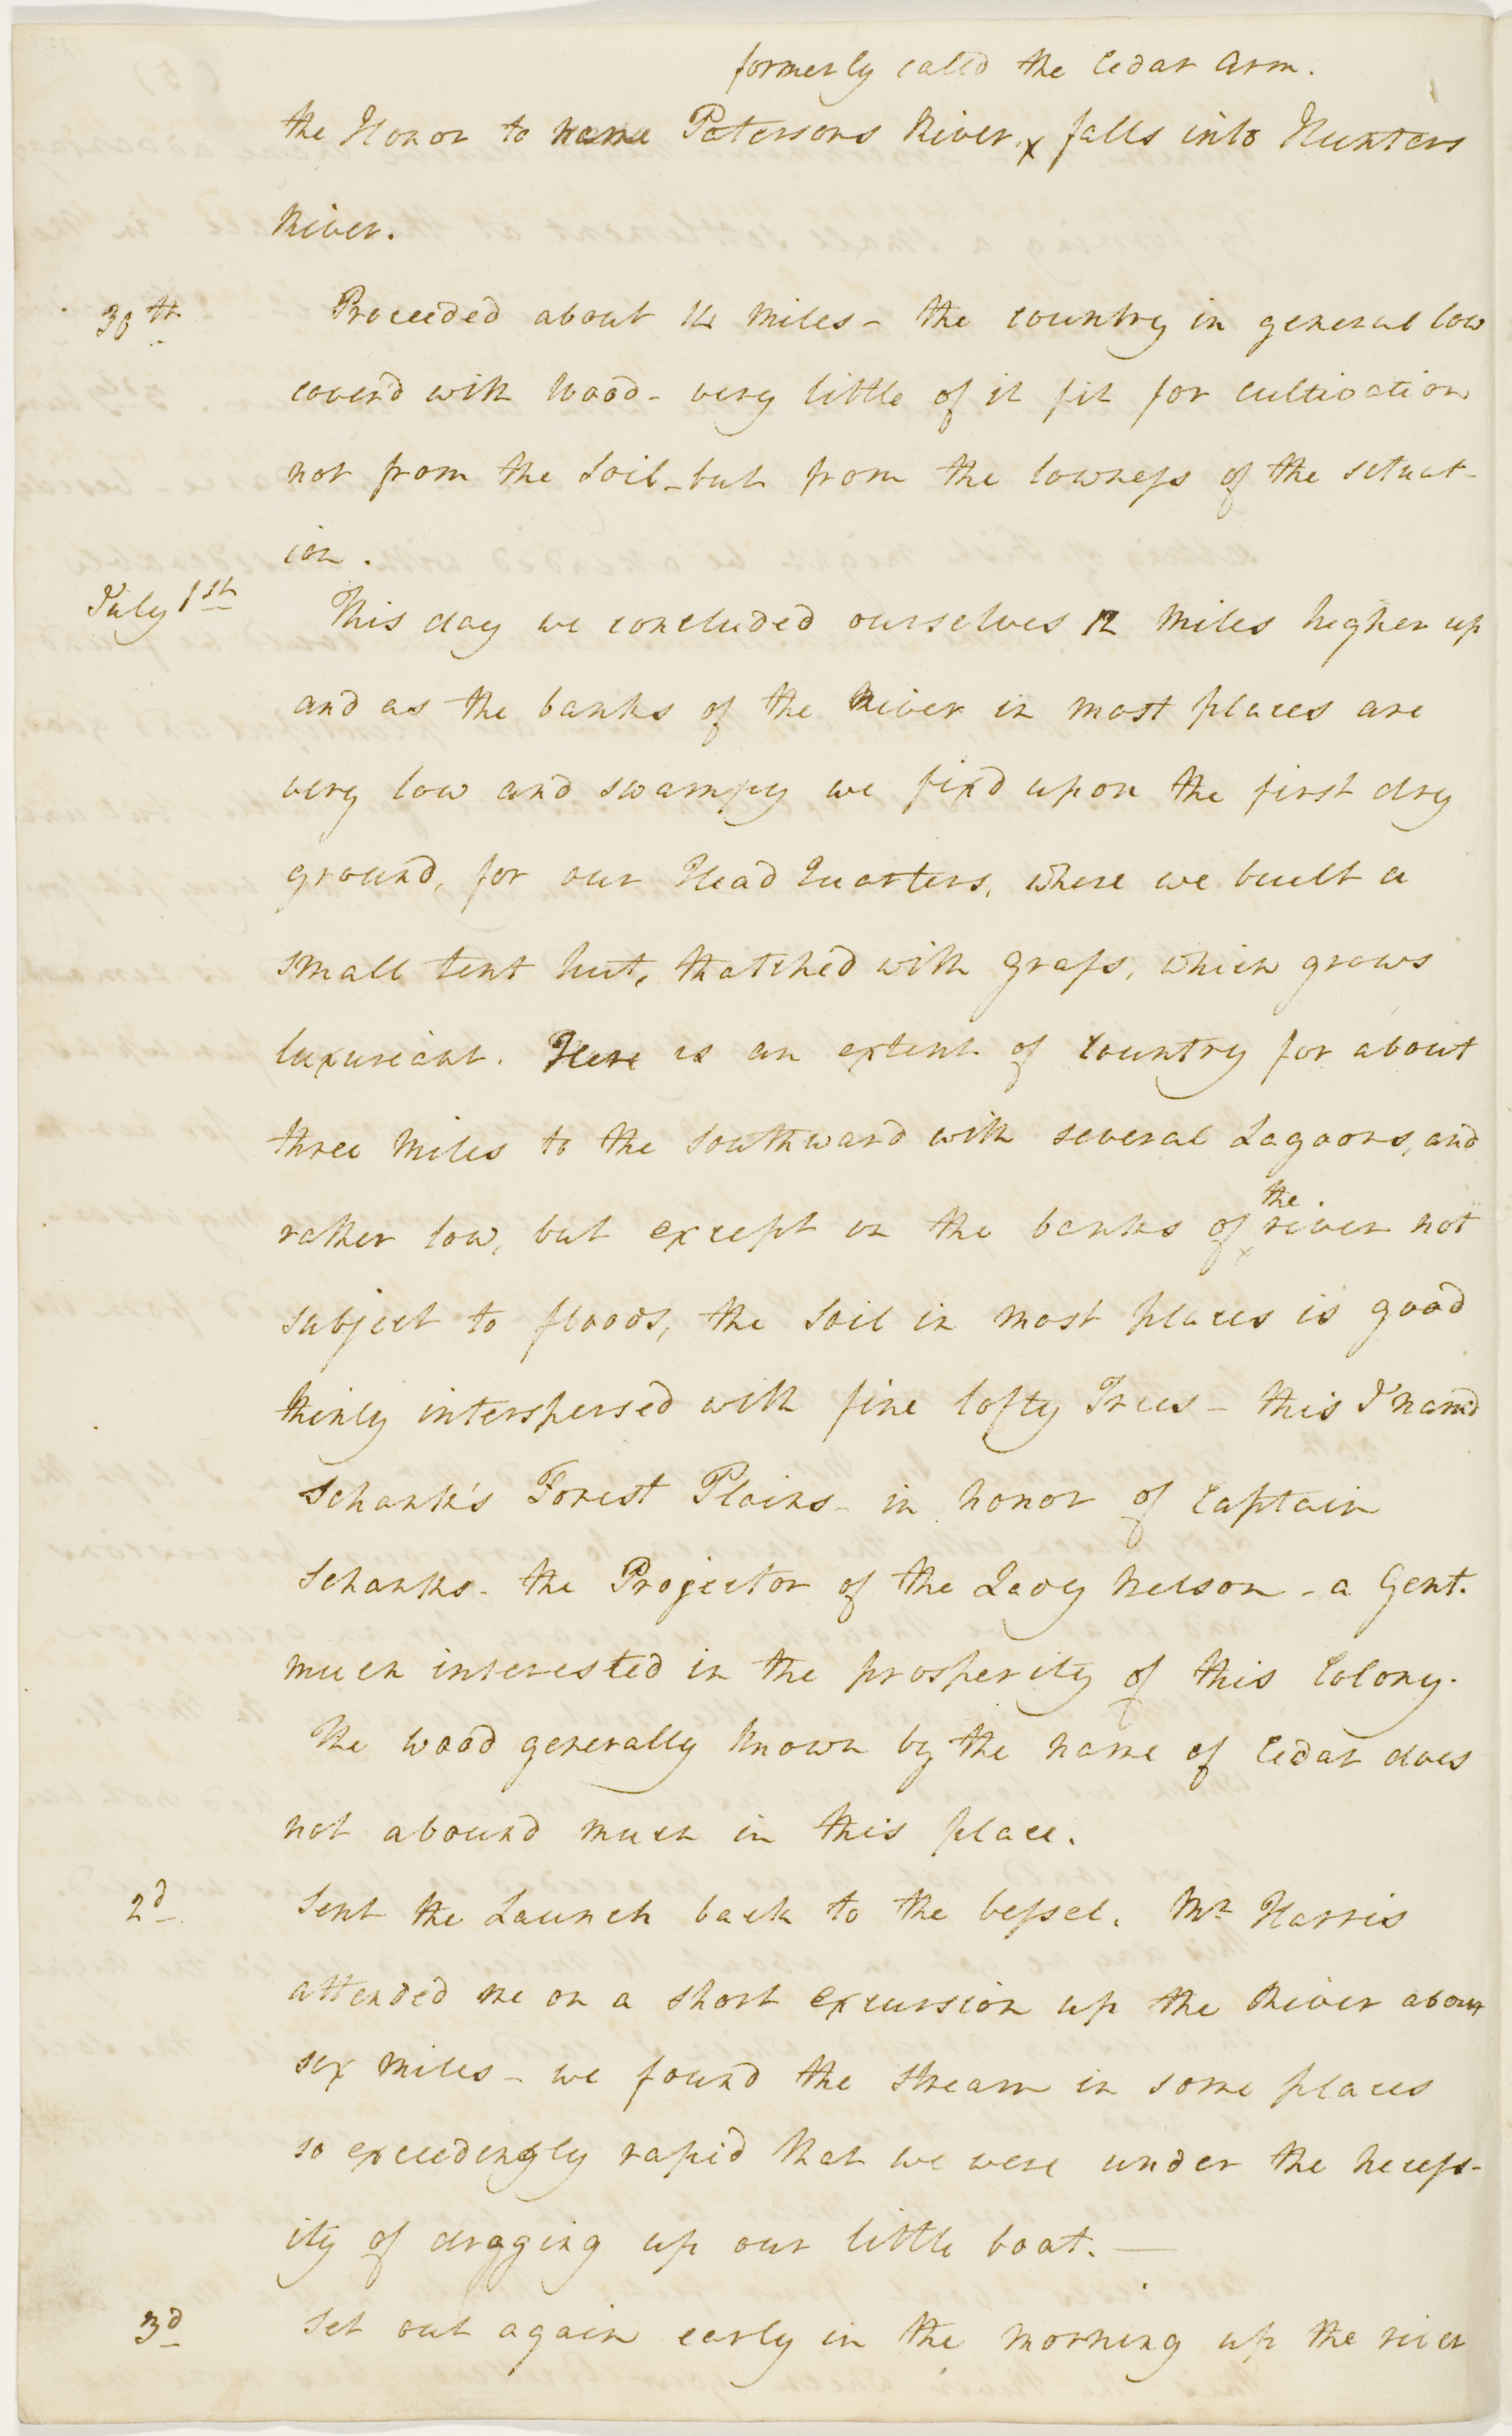 formerly called the Cedar Arm.
the Honor to name Patersons River, x falls into Hunters
River.
30th Proceeded about 14 Miles - the country in general low
cover'd with Wood - very little of it fit for cultivation
not from the Soil - but from the lowness of the situat-
ion.
July 1st This day we concluded ourselves 12 Miles higher up
and as the banks of the River in most places are
very low and swampy we fix'd upon the first dry
ground, for our Head Quarters, where we built a
small tent hut, thatched with Grass, which grows
luxuriant. Here is an extent of Country for about
three Miles to the Southward with several Lagoons, and
the
rather low, but except on the banks of x river not
subject to floods, the Soil in most places is good
thinly interspersed with fine lofty Trees - this I nam'd
Schank's Forest Plains - in honor of Captain
Schanks - the Projector of the Lady Nelson - a Gent.
much interested in the prosperity of this Colony.
The wood generally known by the name of Cedar does
not abound much in this place.
2d Sent the Launch back to the Vessel. Mr Harris
attended me on a short excursion up the River about
six Miles - we found the stream in some places
so exceedingly rapid that we were under the necess-
ity of dragging up our little boat. —
3d Set out again early in the morning up the river